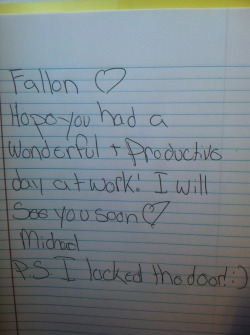 Fallon ♡
Hope you had a
Wonderful + Productive
day at work! I will
See you soon ♡
Michael
P.S. I locked the door! :)